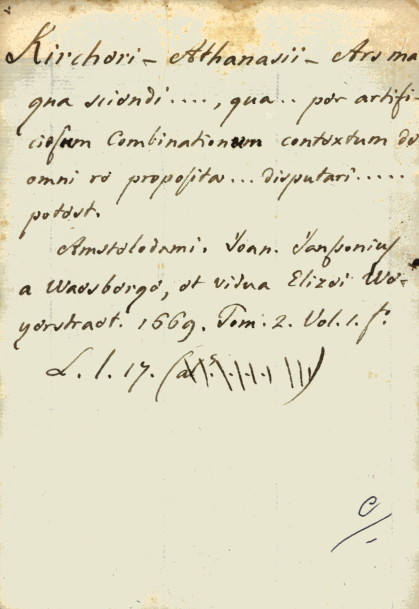 Kircheri - Athanasii - Ars ma
gna sciendi...., qua.. per artifi-
ciosum Combinationum contextum de
omni re proposita... disputari.....
potest.
Amstelodami. Joan. Janssonius
a Waesberge, et vidua Elizei We=
yerstraet. 1669. Tom. 2. Vol. 1. f.º
L. l. 17.